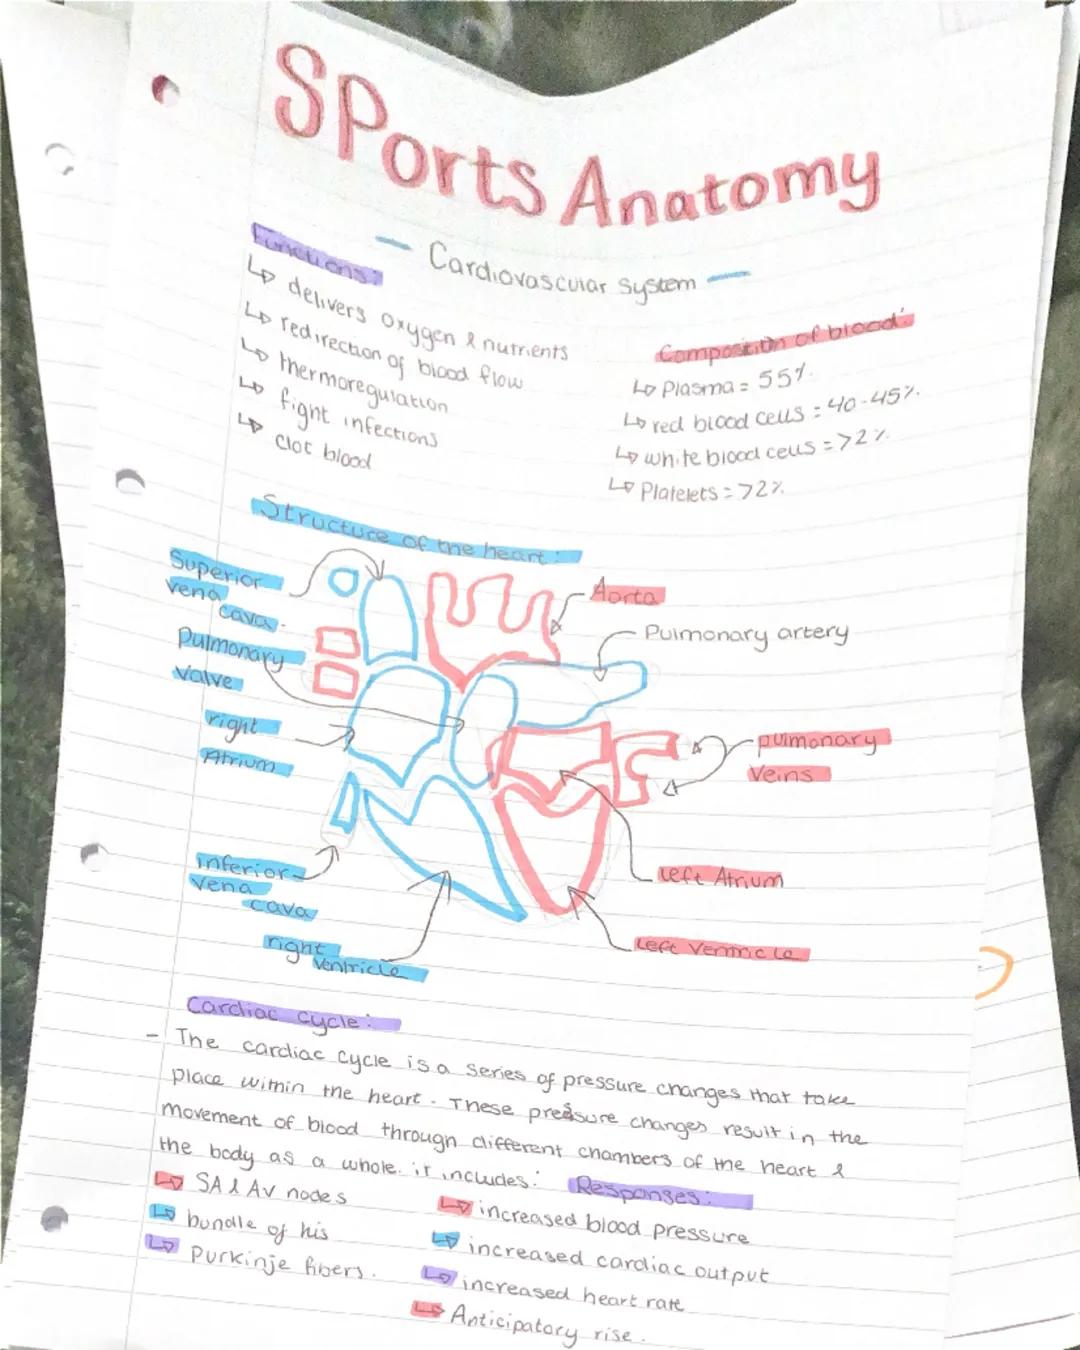 SPorts Anatomy
Cardiovascular system
Functions:
↳ delivers oxygen & nutrients
↳ redirection of blood flow
↳ thermoregulation
↳ fight infections
↳ clot blood
Composition of blood:
↳ Plasma = 55%.
↳ red blood cells = 40-45%.
↳ white blood cells = >2%.
↳ Platelets = >2%.
Structure of the heart:
Superior
vena
cava.
Pulmonary
valve
right
Atrium
inferior
vena
cava
right
ventricle
Aorta
Pulmonary artery
pulmonary
veins
Left Atrium
Left Ventricle
Cardiac cycle:
- The cardiac cycle is a series of pressure changes that take
place within the heart. These pressure changes result in the
movement of blood through different chambers of the heart &
the body as a whole. it includes:
↳ SA & AV nodes
↳ bundle of his
↳ Purkinje fibers.
Responses:
↳ increased blood pressure
↳ increased cardiac output
↳ increased heart rate
↳ Anticipatory rise.